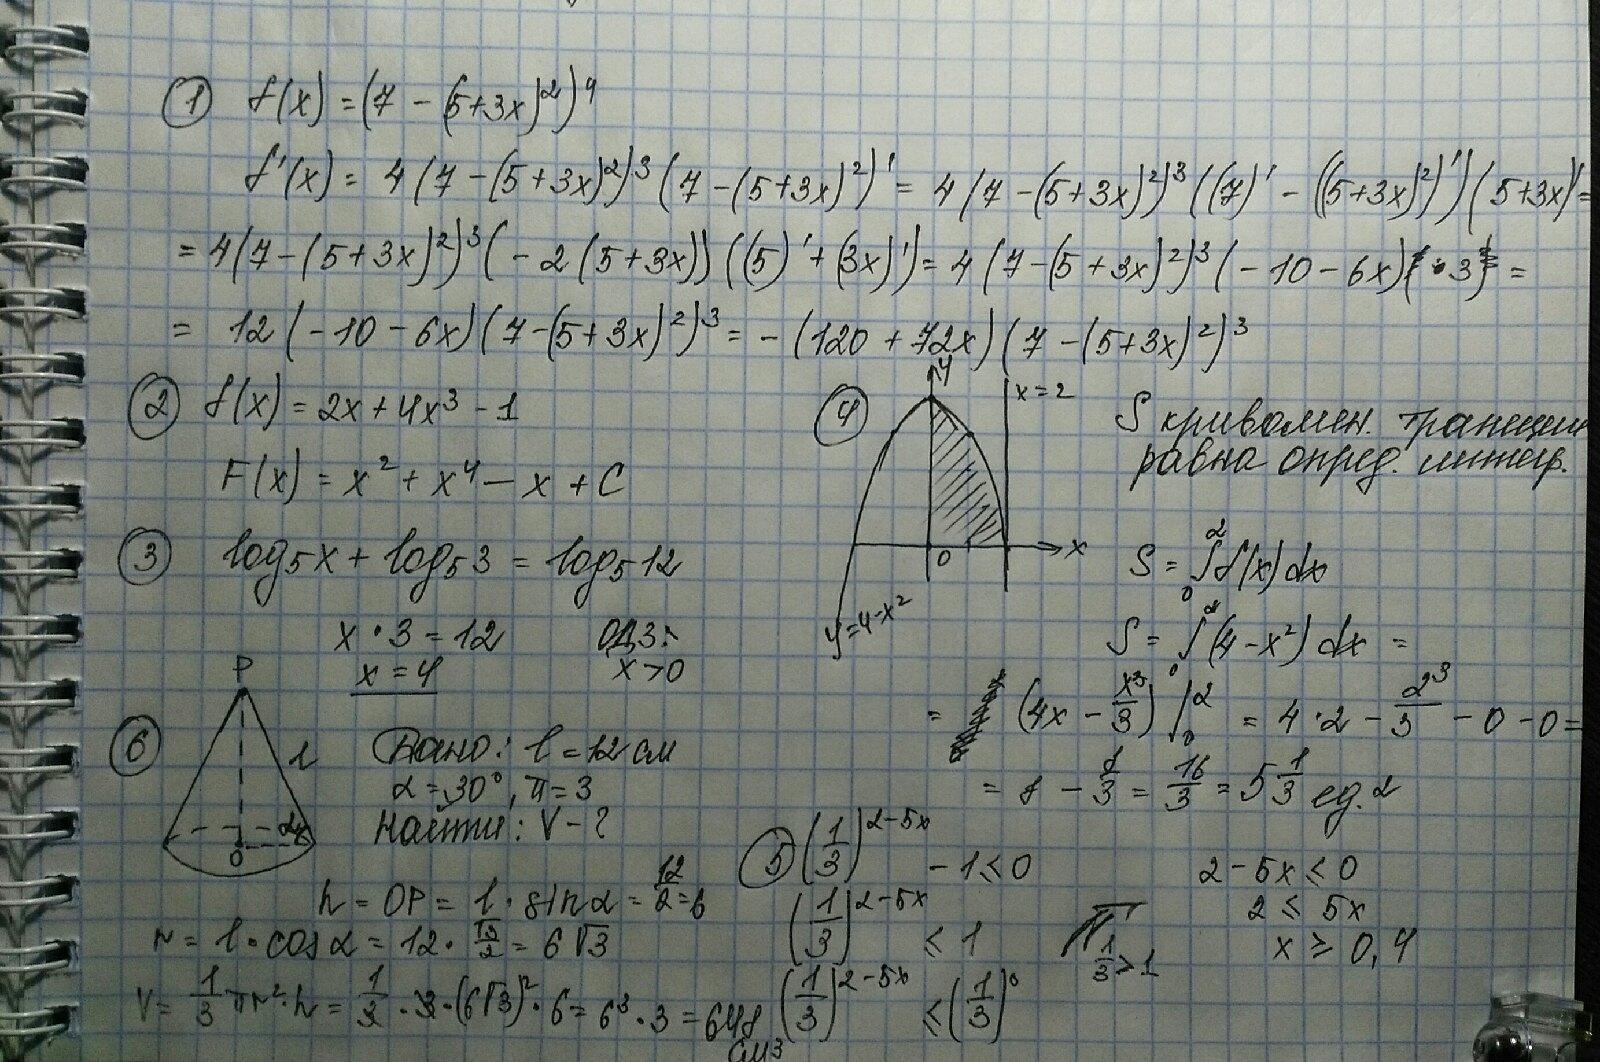 ① f(x) = (7 - (5+3x)²)⁴
f'(x) = 4(7-(5+3x)²)³(7-(5+3x)²)' = 4(7-(5+3x)²)³((7)' - ((5+3x)²)')(5+3x)' =
= 4(7-(5+3x)²)³(-2(5+3x))((5)'+(3x)') = 4(7-(5+3x)²)³(-10-6x)·3 =
= 12(-10-6x)(7-(5+3x)²)³ = -(120+72x)(7-(5+3x)²)³
② f(x) = 2x+4x³-1
F(x) = x²+x⁴-x+C
③ log₅x + log₅3 = log₅12
x·3 = 12 ОДЗ:
x = 4 x>0
④ y x=2
0 x
y=4-x²
S криволин. трапеции
равна опред. интегр.
S = ∫₀² f(x)dx
S = ∫₀² (4-x²)dx =
= (4x - x³/3)|₀² = 4·2 - 2³/3 - 0 - 0 =
= 8 - 8/3 = 16/3 = 5 1/3 ед.²
⑥ P
l
α
O
Дано: l = 12 см
α = 30°, π = 3
Найти: V - ?
h = OP = l·sinα = 12/2 = 6
r = l·cosα = 12·√3/2 = 6√3
V = 1/3 πr²·h = 1/3·3·(6√3)²·6 = 6³·3 = 648
см³
⑤ (1/3)^(2-5x) - 1 ≤ 0
(1/3)^(2-5x) ≤ 1
(1/3)^(2-5x) ≤ (1/3)⁰
1/3 > 1
2-5x ≤ 0
2 ≤ 5x
x ≥ 0,4